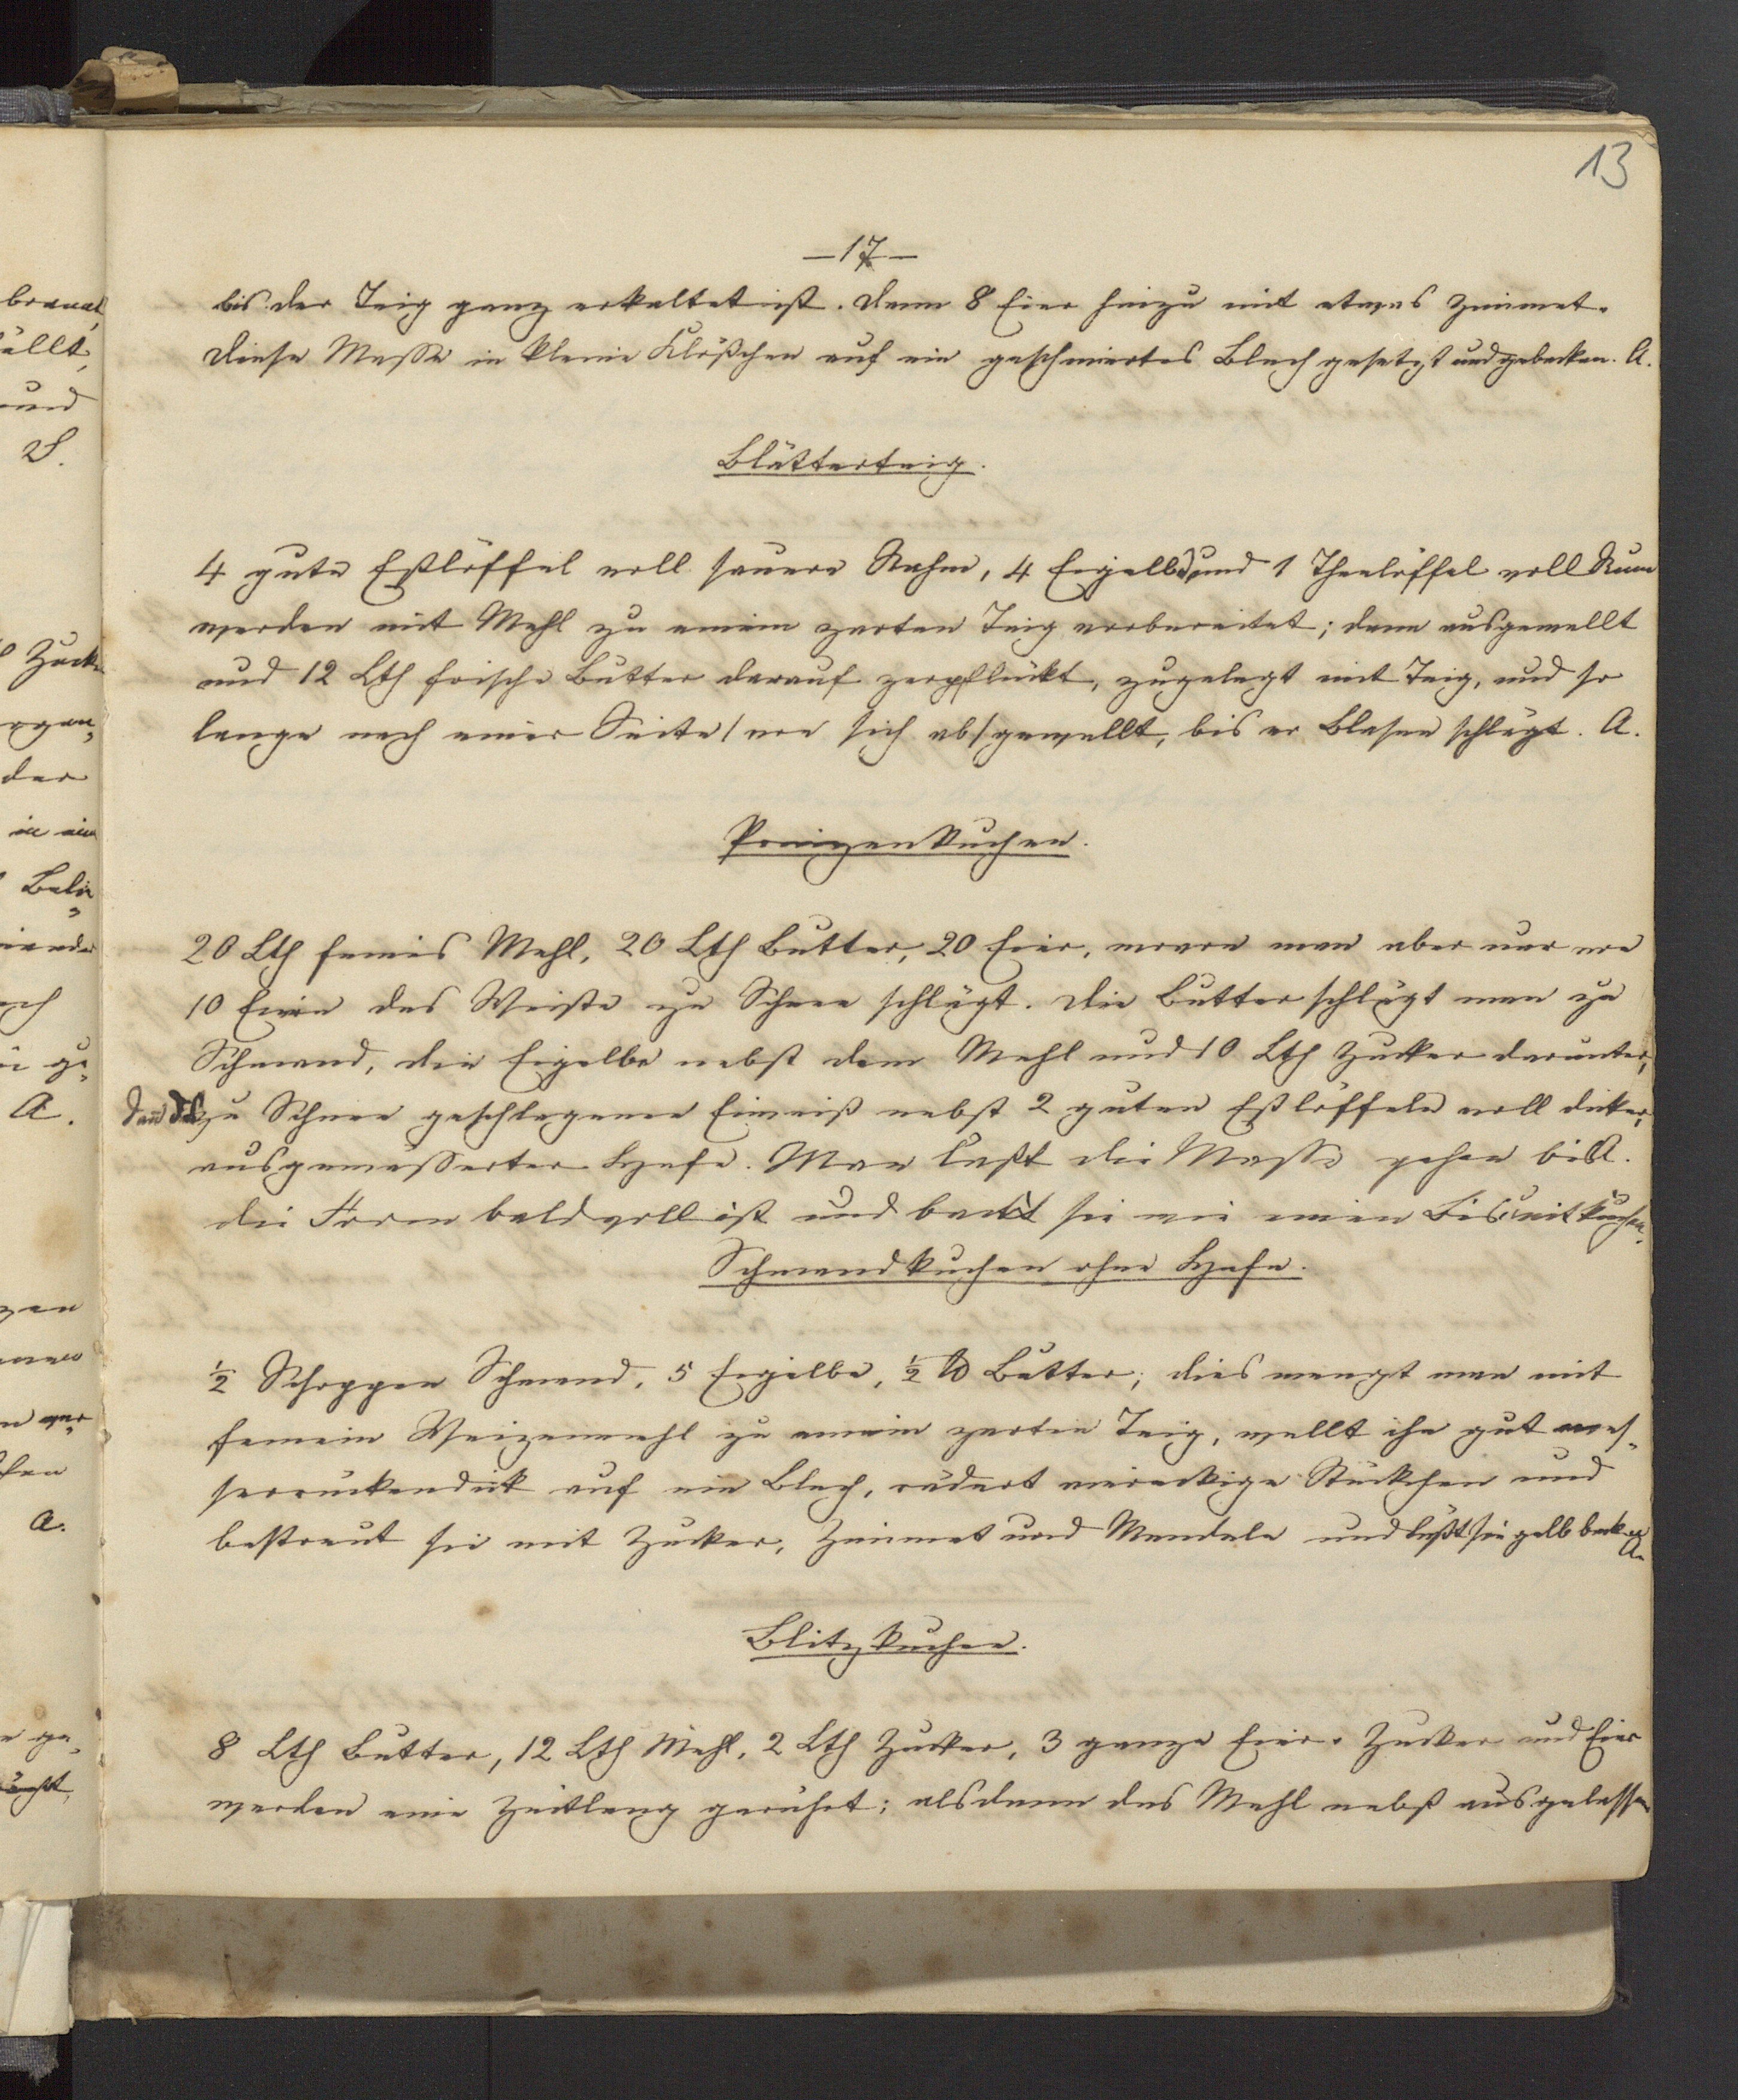 13
—17—
bis der Teig ganz erkaltet ist. Dann 8 Eier hinzu mit etwas Zimmet.
Diese Masse in kleine Klößchen auf ein geschmiertes Blech gesetzt und gebacken. A.
Blätterteig.
4 gute Eßlöffel voll sauere Rahm, 4 Eigelb und 1 Theelöffel voll Rum
werden mit Mehl zu einem zarten Teig vorbereitet; dann ausgewellt
und 12 Lth frische Butter darauf zerpflückt, zugelegt mit Teig, und so
lange nach einer Seite /von sich ab/ gewellt, bis er Blasen schlägt. A.
Prinzenkuchen.
20 Lth feines Mehl, 20 Lth Butter, 20 Eier, wovon man aber nur von
10 Eiern das Weiße zu Schnee schlägt. Die Butter schlägt man zu
Schmand, die Eigelbe nebst dem Mehl und 10 Lth Zucker darunter,
dann das zu Schnee geschlagene Eiweiß nebst 2 guten Eßlöffeln voll dicker,
ausgewässerter Hefe. Man laßt die Masse gehen bis A.
die Form bald voll ist und backt sie wie einen Biscuitkuchen.
Schmandkuchen ohne Hefe.
½ Schoppen Schmand, 5 Eigelbe, ½ ℔ Butter; dies mengt man mit
feinem Weizenmehl zu einem zarten Teig, wellt ihn gut mes-
serrückendick auf ein Blech, rädert viereckige Stückchen und
bestreut sie mit Zucker, Zimmet und Mandeln und läßt sie gelb backen. A.
Blitzkuchen.
8 Lth Butter, 12 Lth Mehl, 2 Lth Zucker, 3 ganze Eier. Zucker und Eier
werden eine Zeitlang gerührt; alsdann das Mehl nebst ausgelassen